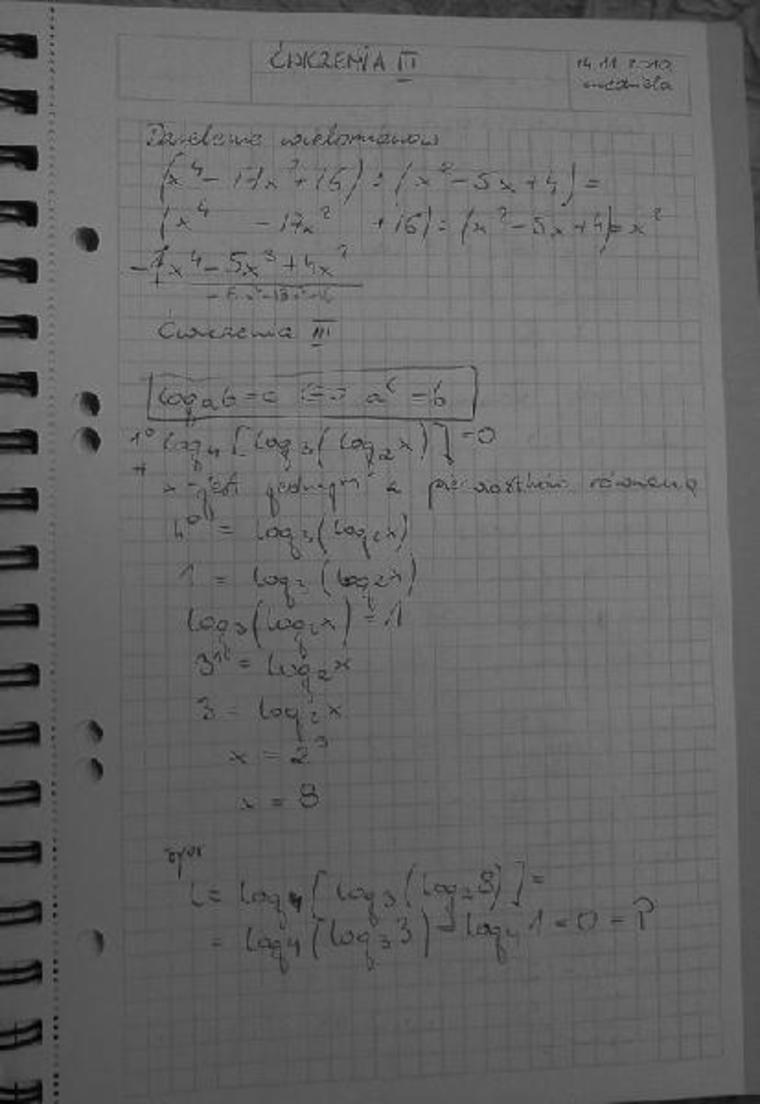 ĆWICZENIA III
14.11.2010
niedziela
Dzielenie wielomianów
(x⁴ - 17x² + 16) : (x² - 5x + 4) =
(x⁴ - 17x² + 16) : (x² - 5x + 4) = x²
- x⁴ - 5x³ + 4x²
Ćwiczenia III
log_a b = c <=> a^c = b
1° log₄[log₃(log₂x)] = 0
x - jest jednym z pierwiastków równania
4⁰ = log₃(log₂x)
1 = log₃(log₂x)
log₃(log₂x) = 1
3¹ = log₂x
3 = log₂x
x = 2³
x = 8
L = log₄[log₃(log₂8)] =
= log₄(log₃3) = log₄1 = 0 = P